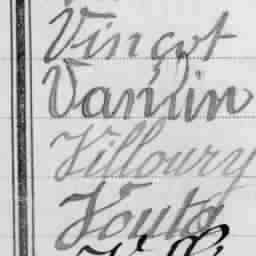 Vinçot
Vannin
Villoury
Vouta